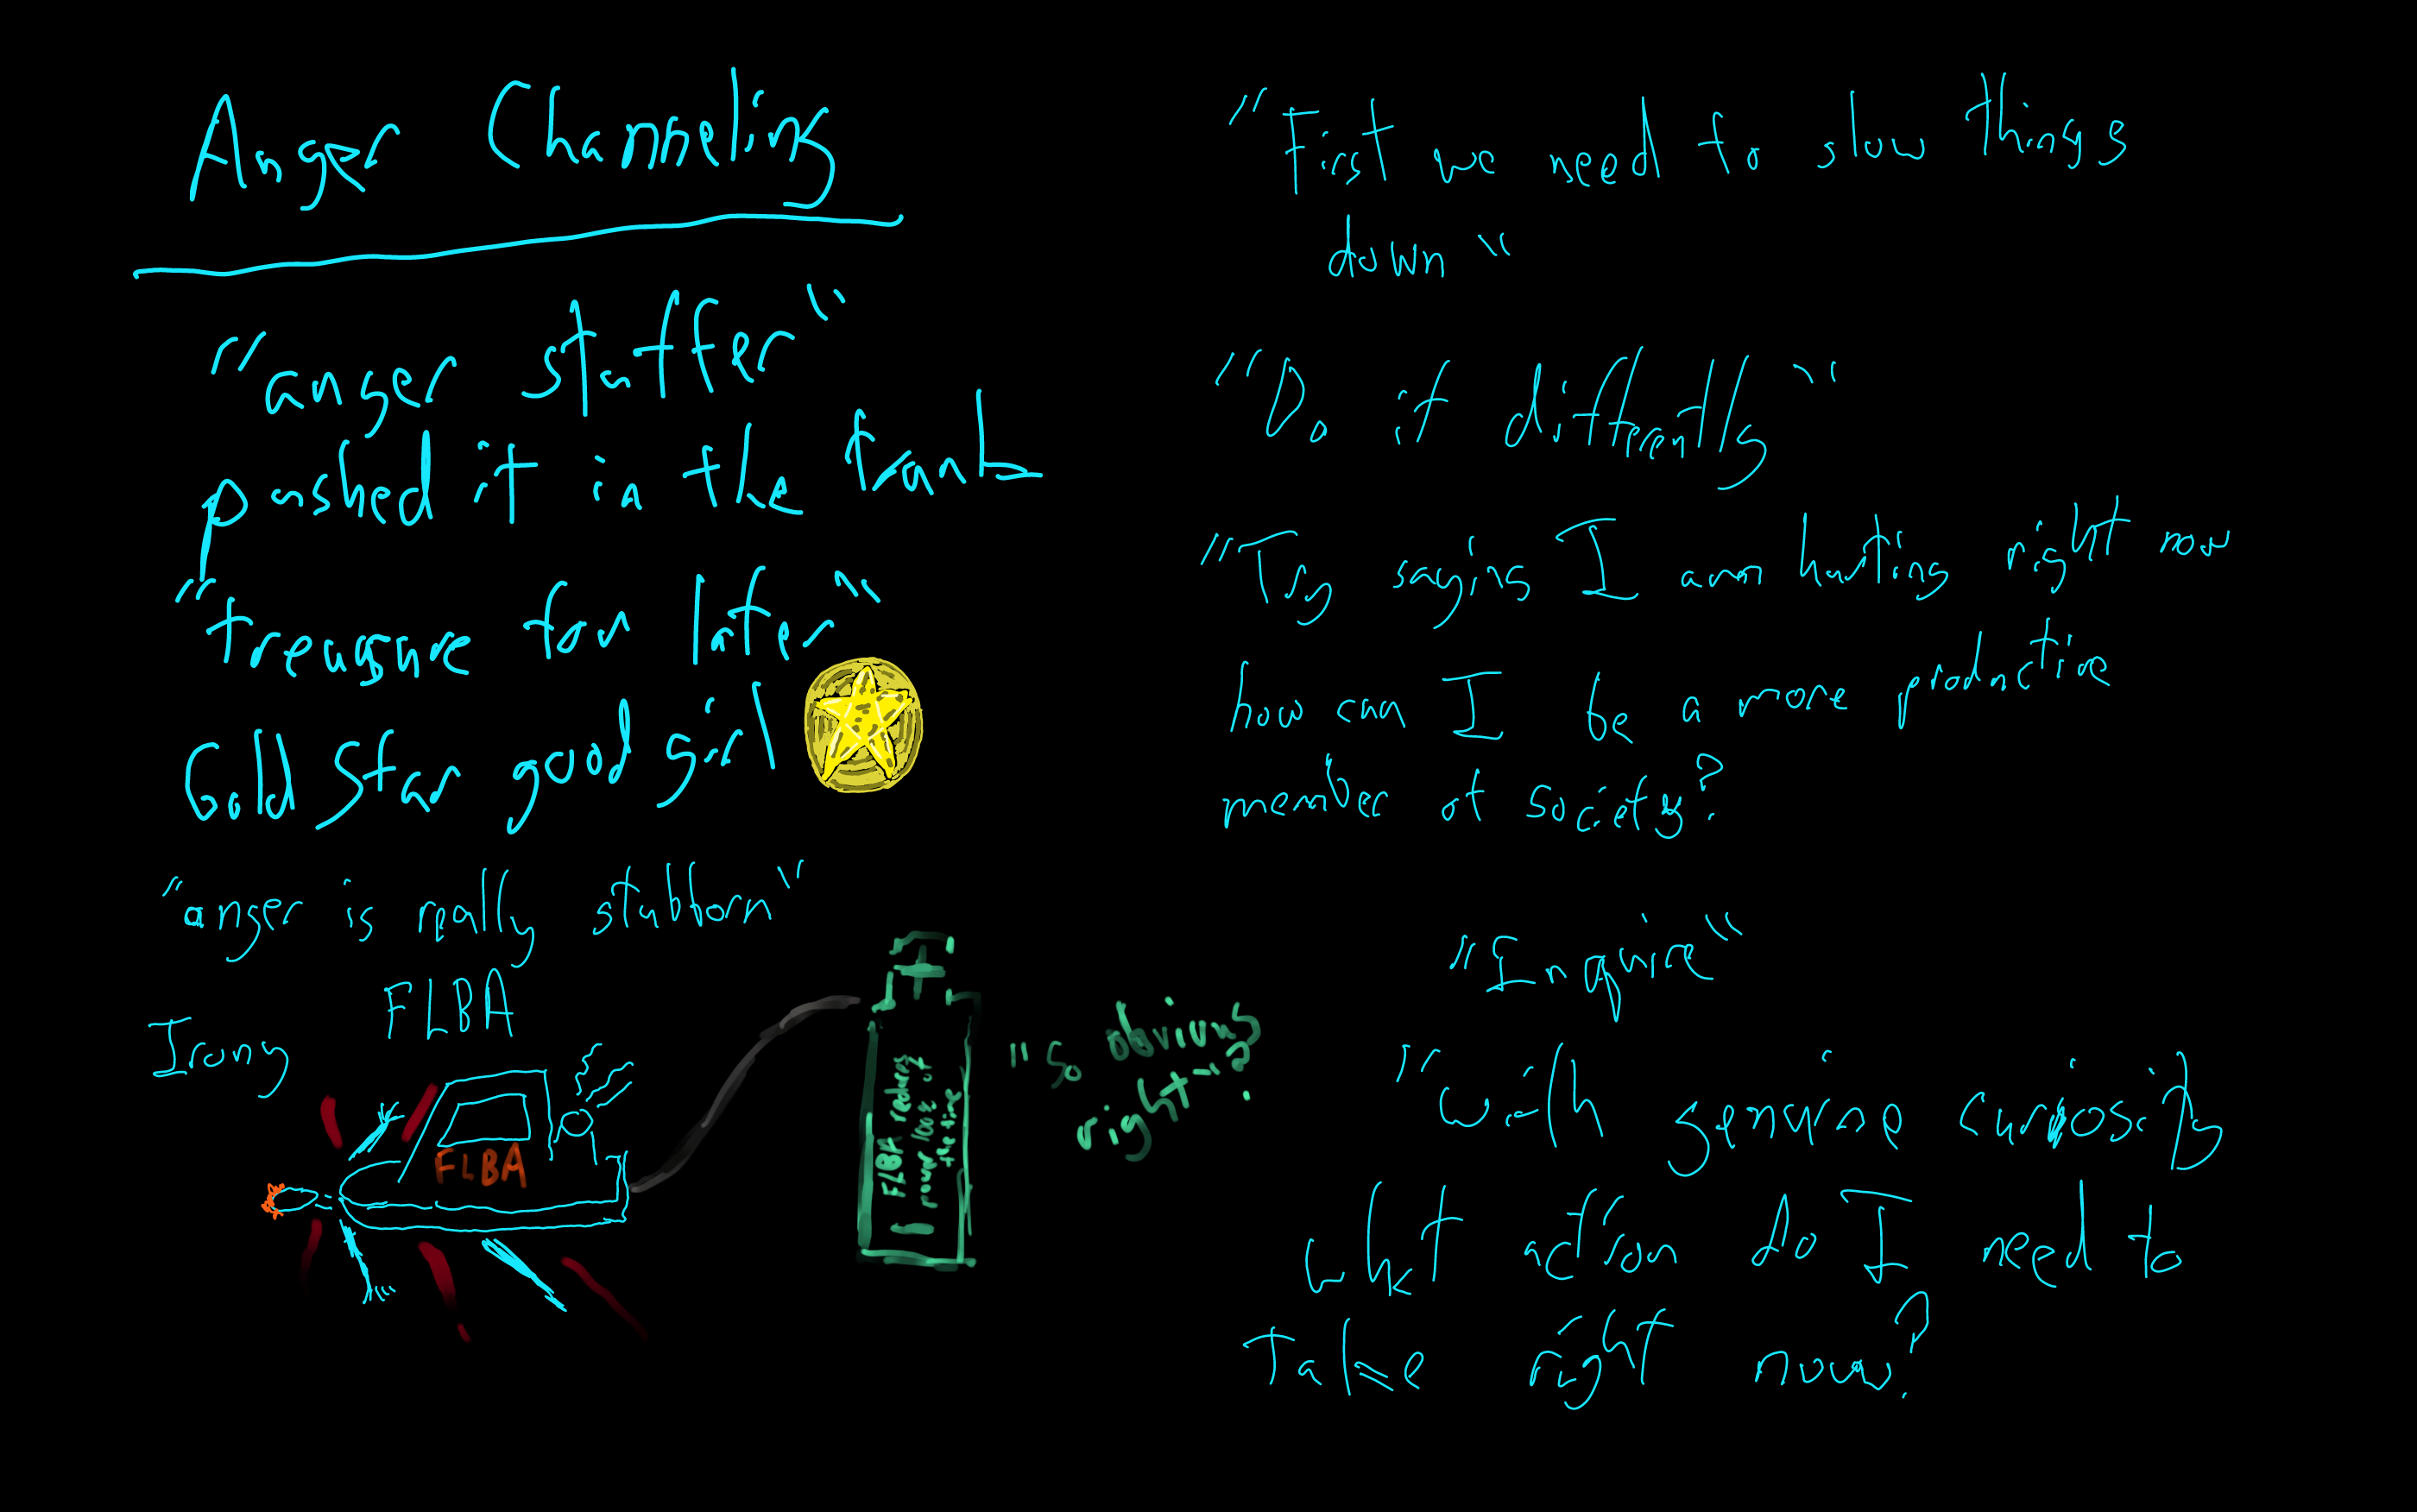 Anger Channeling
"anger stuffer"
pushed it in the trunk
"treausure for later"
Gold Star good girl
"anger is really stubborn"
FLBA
Irony
FLBA
FLBA reduces
power 100% of
the time
"so obvious
right"?
"First we need to slow things
down"
"Do it differently"
"Try saying I am hurting right now
how can I be a more productive
member of society?
"Inquire"
"with genuine curiosity
what action do I need to
take right now?